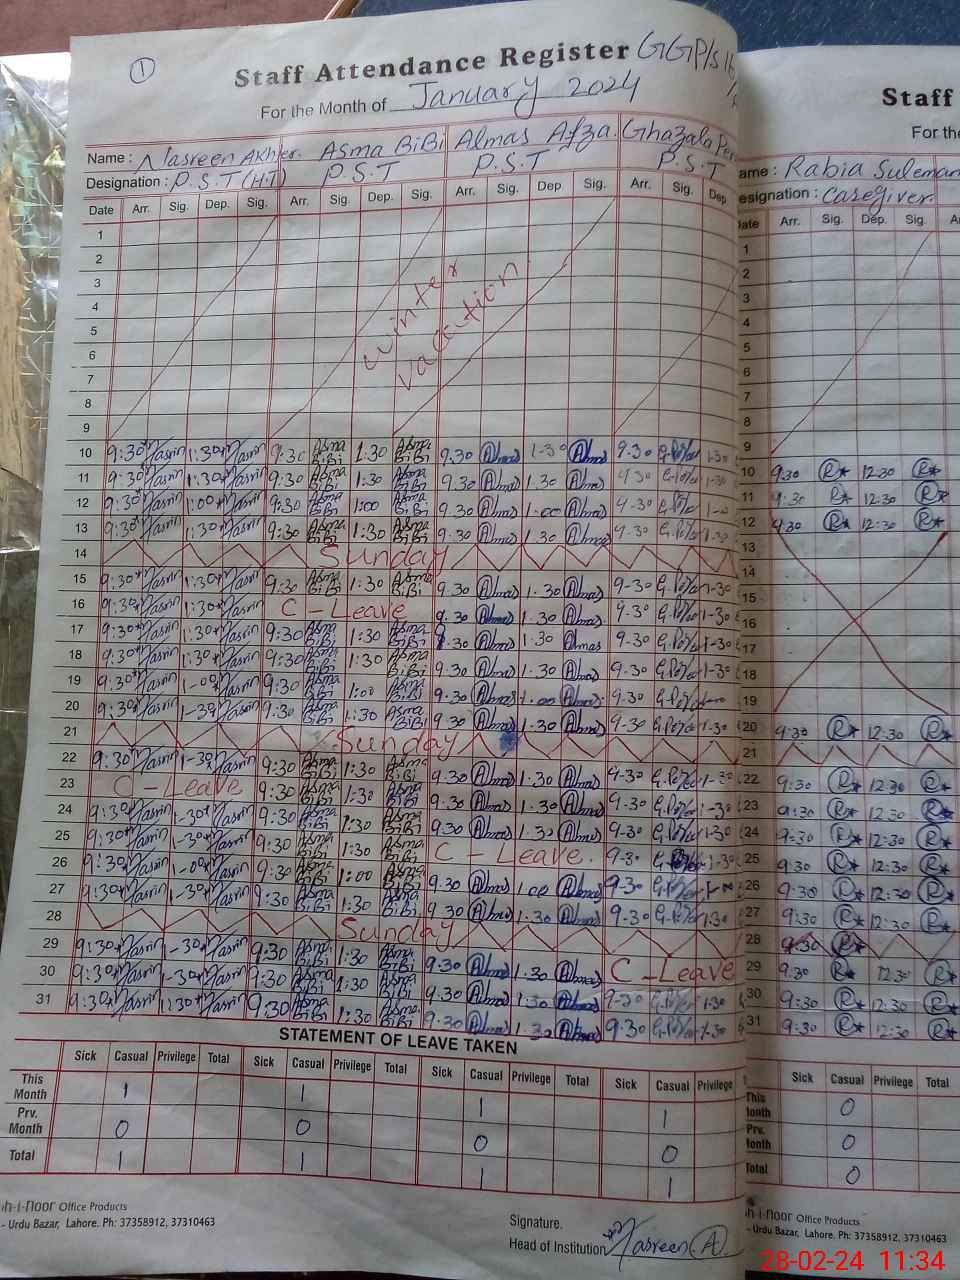 1
Staff Attendance Register GGP/s
For the Month of January 2024
Name : Nasreen Akhter. Asma BiBi Almas Afza. Ghazala Per
Designation : P.S.T (H.T) P.S.T P.S.T P.S.T
Date Arr. Sig. Dep. Sig. Arr. Sig. Dep. Sig. Arr. Sig. Dep. Sig. Arr. Sig. Dep
1
2
3
4
5
6
7
8
9
winter
vacation
10 9:30 Nasrin 1:30 Nasrin 9:30 Asma BiBi 1:30 Asma BiBi 9.30 Almas 1-30 Almas 9.30 1-30
11 9:30 Nasrin 1:30 Nasrin 9:30 Asma BiBi 1:30 Asma BiBi 9.30 Almas 1.30 Almas 9.30 1-30
12 9:30 Nasrin 1:00 Nasrin 9:30 Asma BiBi 1:00 Asma BiBi 9.30 Almas 1.00 Almas 9.30
13 9:30 Nasrin 1:30 Nasrin 9:30 Asma BiBi 1:30 Asma BiBi 9.30 Almas 1.30 Almas 9.30
14 Sunday
15 9:30 Nasrin 1:30 Nasrin 9:30 Asma BiBi 1:30 Asma BiBi 9.30 Almas 1.30 Almas 9-30 1-30
16 9:30 Nasrin 1:30 Nasrin C - Leave 9.30 Almas 1.30 Almas 9-30 1-30
17 9:30 Nasrin 1:30 Nasrin 9:30 Asma BiBi 1:30 Asma BiBi 9.30 Almas 1:30 Almas 9-30 1-30
18 9:30 Nasrin 1:30 Nasrin 9:30 Asma BiBi 1:30 Asma BiBi 9.30 Almas 1.30 Almas 9.30 1-30
19 9:30 Nasrin 1-00 Nasrin 9:30 Asma BiBi 1:00 Asma BiBi 9.30 Almas 1.00 Almas 9.30
20 9:30 Nasrin 1-30 Nasrin 9:30 Asma BiBi 1:30 Asma BiBi 9.30 Almas 1.30 Almas 9-30 1-30
21 Sunday
22 9:30 Nasrin 1-30 Nasrin 9:30 Asma BiBi 1:30 Asma BiBi 9.30 Almas 1.30 Almas 9-30 1-30
23 C - Leave 9:30 Asma BiBi 1:30 Asma BiBi 9.30 Almas 1.30 Almas 9-30 1-30
24 9:30 Nasrin 1-30 Nasrin 9:30 Asma BiBi 1:30 Asma BiBi 9.30 Almas 1.30 Almas 9-30 1-30
25 9:30 Nasrin 1-30 Nasrin 9:30 Asma BiBi 1:30 Asma BiBi C - Leave. 9-30 1-30
26 9:30 Nasrin 1-00 Nasrin 9:30 Asma BiBi 1:00 Asma BiBi 9.30 Almas 1.00 Almas 9-30
27 9:30 Nasrin 1-30 Nasrin 9:30 Asma BiBi 1:30 Asma BiBi 9.30 Almas 1.30 Almas 9-30 1.30
28 Sunday
29 9:30 Nasrin 1-30 Nasrin 9:30 Asma BiBi 1:30 Asma BiBi 9.30 Almas 1.30 Almas C - Leave
30 9:30 Nasrin 1-30 Nasrin 9:30 Asma BiBi 1:30 Asma BiBi 9.30 Almas 1:30 Almas 9-30 1.30
31 9:30 Nasrin 1:30 Nasrin 9:30 Asma BiBi 1:30 Asma BiBi 9.30 Almas 1.30 Almas 9.30 1.30
STATEMENT OF LEAVE TAKEN
Sick Casual Privilege Total Sick Casual Privilege Total Sick Casual Privilege Total Sick Casual Privilege
This Month 1 1 1 1
Prv. Month 0 0 0 0
Total 1 1 1 1
h-i-noor Office Products
- Urdu Bazar, Lahore. Ph: 37358912, 37310463
Signature.
Head of Institution Nasreen A
Staff
For the
ame : Rabia Suleman
esignation : Caregiver.
ate Arr. Sig. Dep. Sig. Ar
1
2
3
4
5
6
7
8
9
10 9.30 R 12.30 R
11 9.30 R 12.30 R
12 9.30 R 12:30 R
13
14
15
16
17
18
19
20 9.30 R 12.30 R
21
22 9:30 R 12:30 R
23 9:30 R 12.30 R
24 9:30 R 12.30 R
25 9.30 R 12.30 R
26 9:30 R 12:30 R
27 9:30 R 12.30 R
28 9.30 R
29 9.30 R 12.30 R
30 9:30 R 12.30 R
31 9:30 R 12:30 R
Sick Casual Privilege Total
This Month 0
Prv. Month 0
Total 0
h-i-noor Office Products
- Urdu Bazar, Lahore. Ph: 37358912, 37310463
28-02-24 11:34